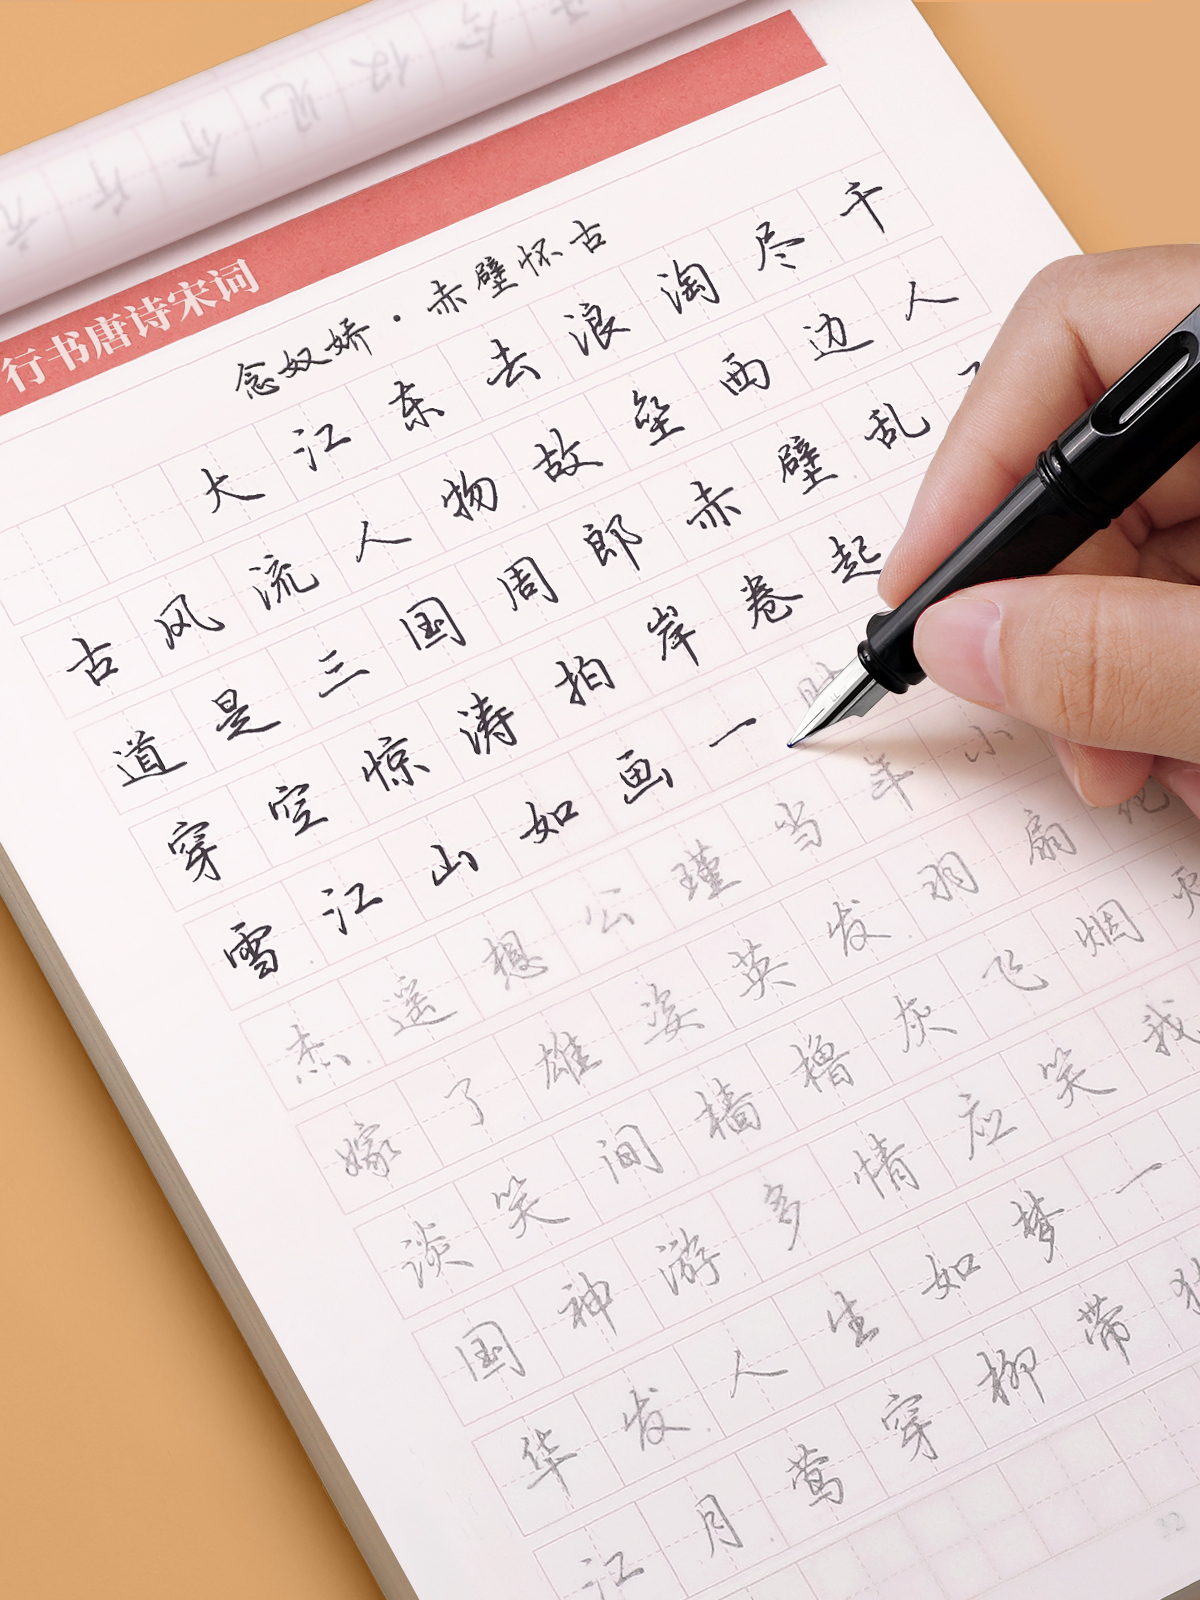 行书唐诗宋词
念奴娇·赤壁怀古
大江东去浪淘尽千
古风流人物故垒西边人
道是三国周郎赤壁乱
穿空惊涛拍岸卷起
雪江山如画一
杰遥想公瑾当年小
嫁了雄姿英发羽扇
谈笑间樯橹灰飞烟
国神游多情应笑我
华发人生如梦一
江月莺穿柳带
32